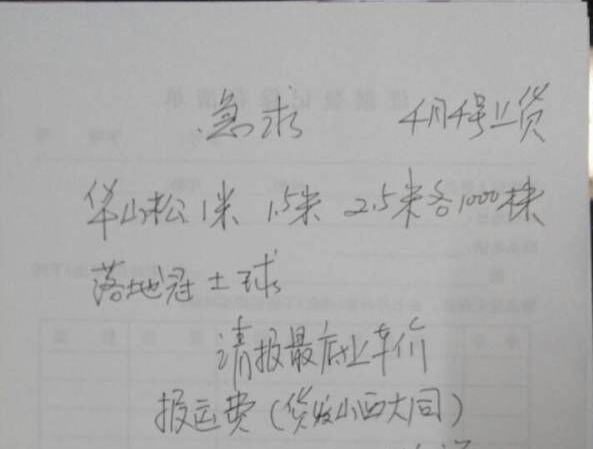 急求 4月4号上货
华山松1米 1.5米 2.5米各1000株
落地冠土球
请报最底上车价
报运费(货发山西大同)